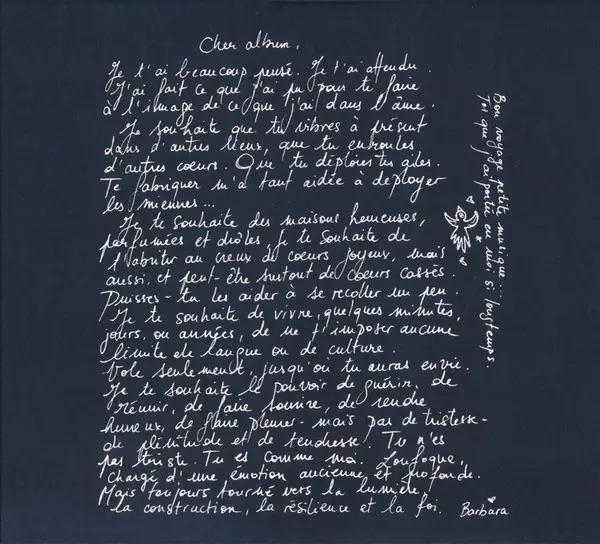 Cher album,
Je t'ai beaucoup pensé. Je t'ai attendu.
J'ai fait ce que j'ai pu pour te faire
à l'image de ce que j'ai dans l'âme.
Je souhaite que tu vibres à présent
dans d'autres lieux, que tu enroules
d'autres coeurs. Que tu déploies tes ailes.
Te fabriquer m'a tant aidée à déployer
les miennes...
Je te souhaite des maisons heureuses,
parfumées et drôles. Je te souhaite de
t'abriter au creux de coeurs joyeux, mais
aussi, et peut-être surtout de coeurs cassés.
Puisses-tu les aider à se recoller un peu.
Je te souhaite de vivre, quelques minutes,
jours, ou années, de ne t'imposer aucune
limite de langue ou de culture.
Vole seulement, jusqu'où tu auras envie.
Je te souhaite le pouvoir de guérir, de
réunir, de faire sourire, de rendre
heureux, de faire pleurer - mais pas de tristesse -
de plénitude et de tendresse. Tu n'es
pas triste. Tu es comme moi. Loufoque,
chargé d'une émotion ancienne et profonde.
Mais toujours tourné vers la lumière,
la construction, la résilience et la foi.
Barbara
Bon voyage petite musique...
Toi que j'ai portée en moi si longtemps.